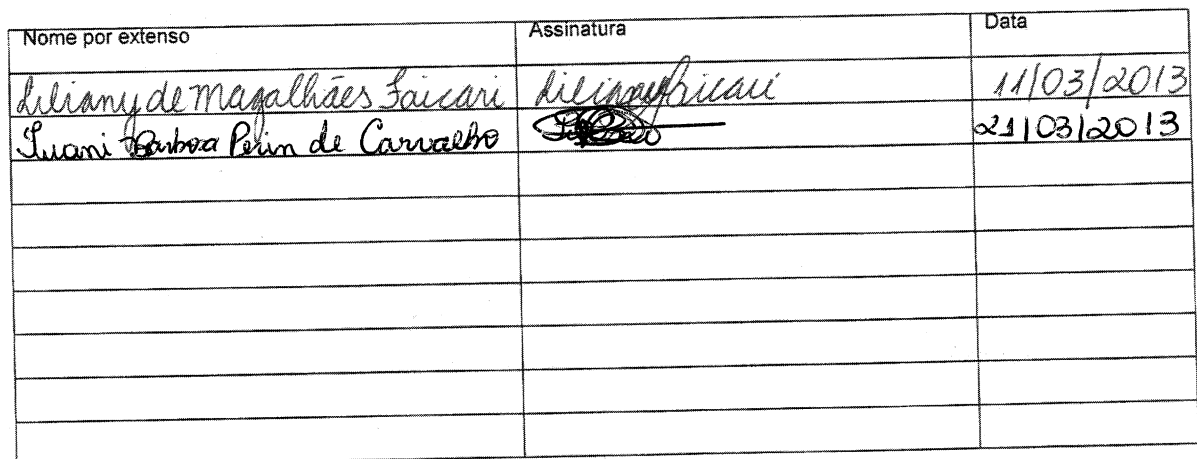 Nome por extenso Assinatura Data
Liliany de Magalhães Faicari 11/03/2013
Barboza Perin de Carvalho 21/03/2013